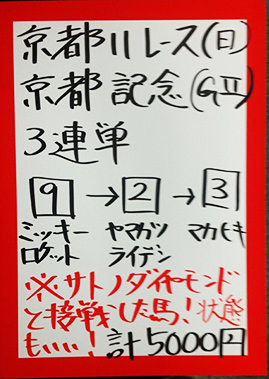 京都11レース(日)
京都記念(GⅡ)
3連単
9→2→3
ミッキー ヤマカツ マカヒキ
ロケット ライデン
※サトノダイヤモンド
と接戦した馬!状態
もいい!計5000円